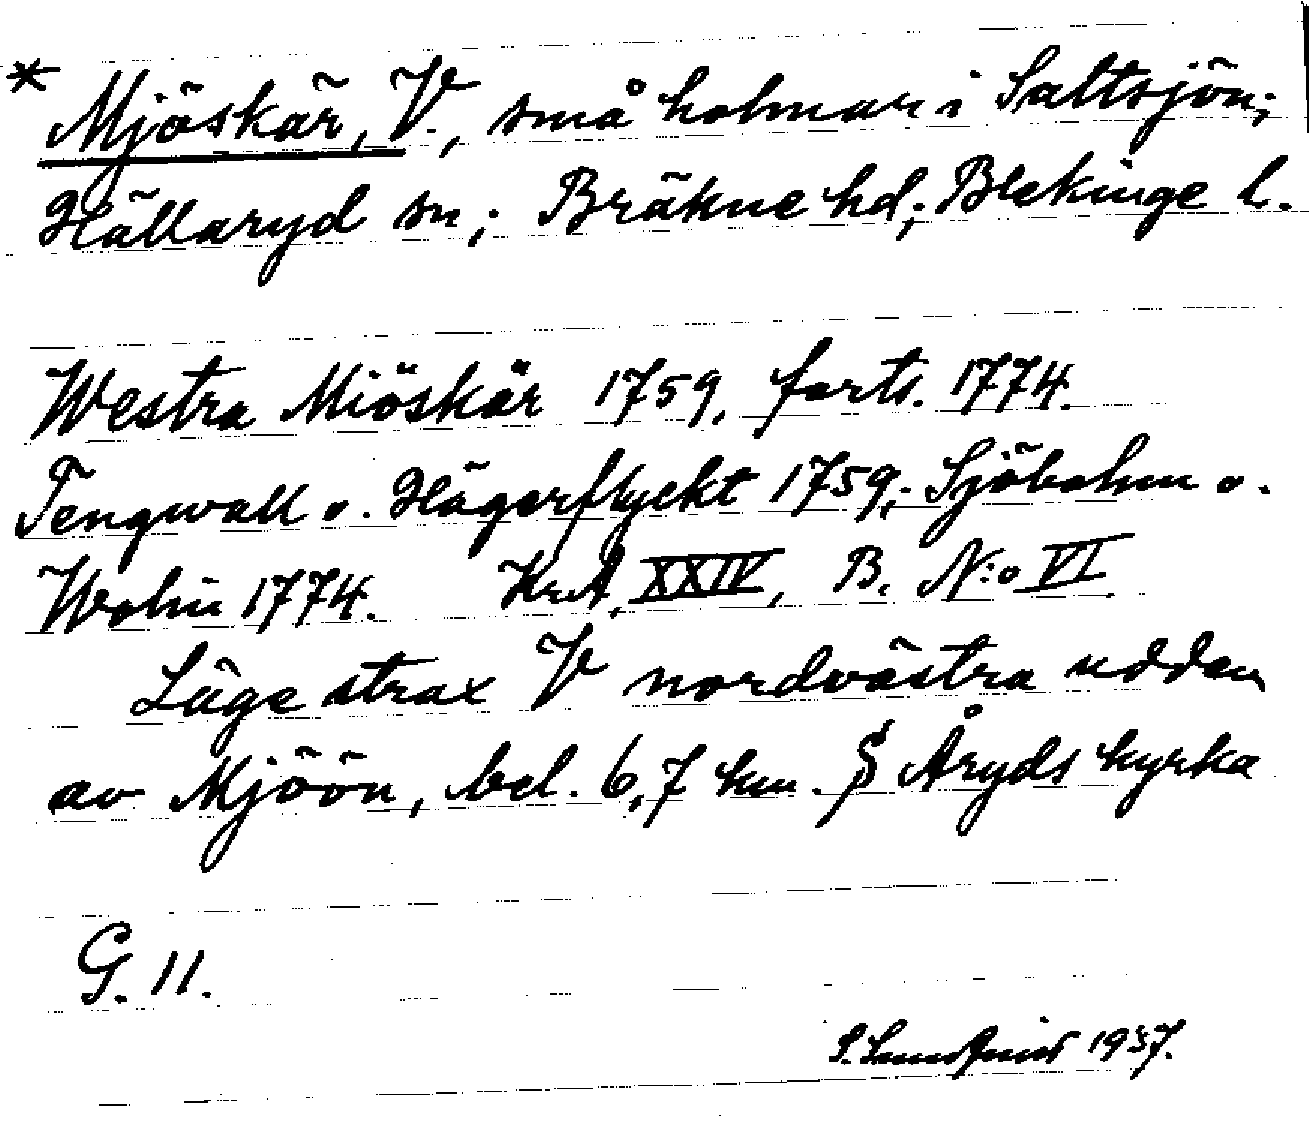 * Mjöskär, V., små holmar i Saltsjön;
Hällaryd sn; Bräkne hd; Blekinge l.
Westra Miöskär 1759, forts. 1774.
Tengwall o. Hägerflyckt 1759; Sjöbohm o.
Wohn 1774. Kr.A, XXIV, B. N:o VI
Läge strax V nordvästra udden
av Mjöön, bel. 6,7 km. S Åryds kyrka
G. 11.
S. 1937.